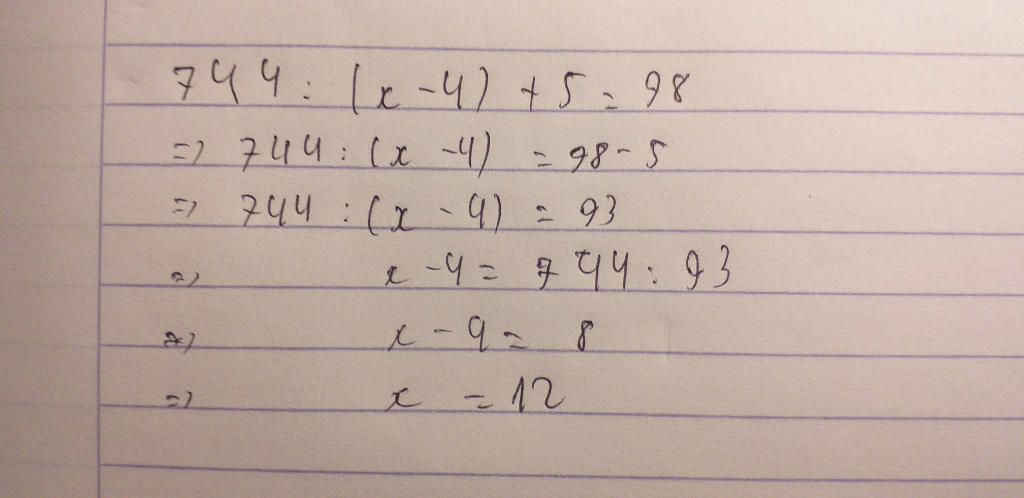 744 : (x - 4) + 5 = 98
=> 744 : (x - 4) = 98 - 5
=> 744 : (x - 4) = 93
=> x - 4 = 744 : 93
=> x - 4 = 8
=> x = 12